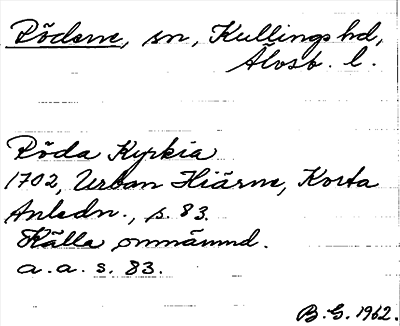 Rödene, sn, Kullings hd,
Älvsb. l.
Röda Kyrkia
1702, Urban Hiärne, Korta
Anledn., s. 83.
Källa omnämnd.
a. a. s. 83.
B. G. 1962.